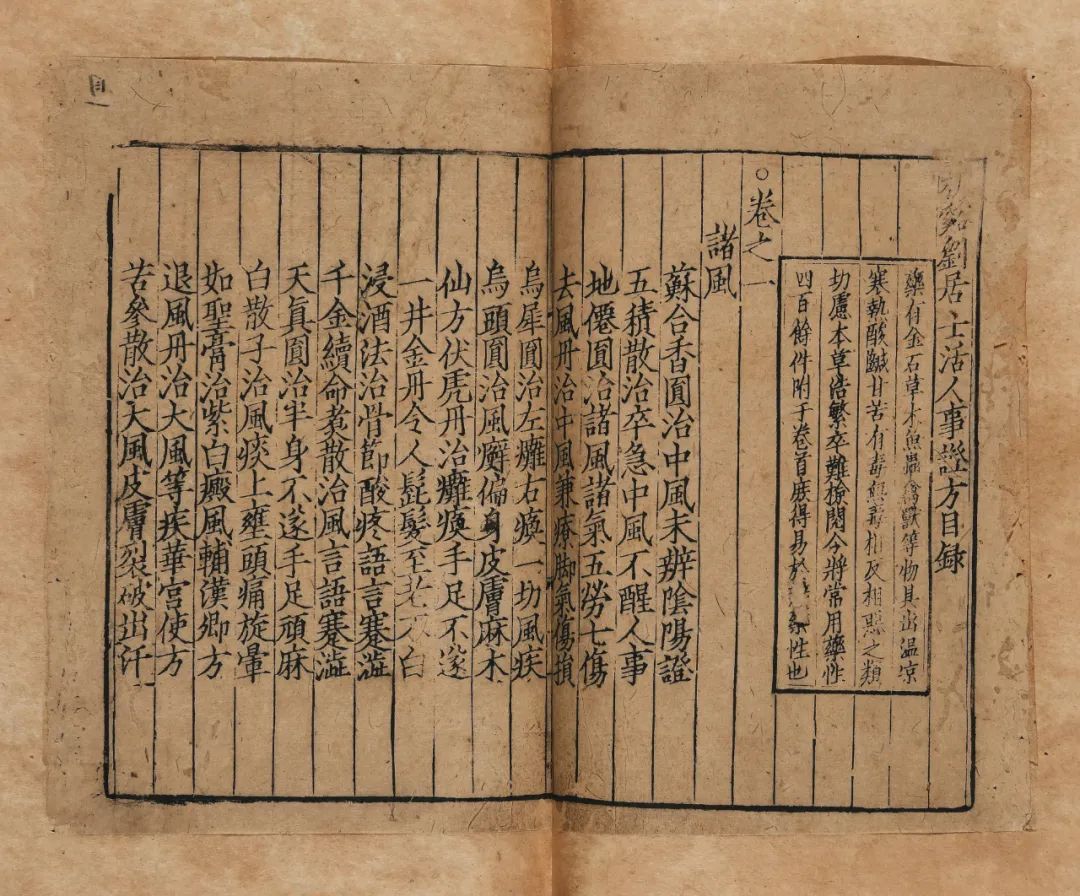 劉居士活人事證方目録
藥有金石草木魚蟲禽獸等物具出温凉
寒熱酸鹹甘苦有毒無毒相反相惡之類
切慮本草浩繁卒難撿閱今將常用藥性
四百餘件附于卷首庶得易於 性也
○卷之一
諸風
蘇合香圓治中風未辨陰陽證
五積散治卒急中風不醒人事
地僊圓治諸風諸氣五勞七傷
去風丹治中風兼療脚氣傷損
烏犀圓治左癱右瘓一切風疾
烏頭圓治風癬偏身皮膚麻木
仙方伏虎丹治癱瘓手足不遂
一井金丹令人髭髮至老不白
浸酒法治骨節酸疼語言蹇澁
千金續命煮散治風言語蹇澁
天真圓治半身不遂手足頑麻
白散子治風痰上壅頭痛旋暈
如聖膏治紫白癜風輔漢卿方
退風丹治大風等疾華宮使方
苦參散治大風皮膚裂破出汗